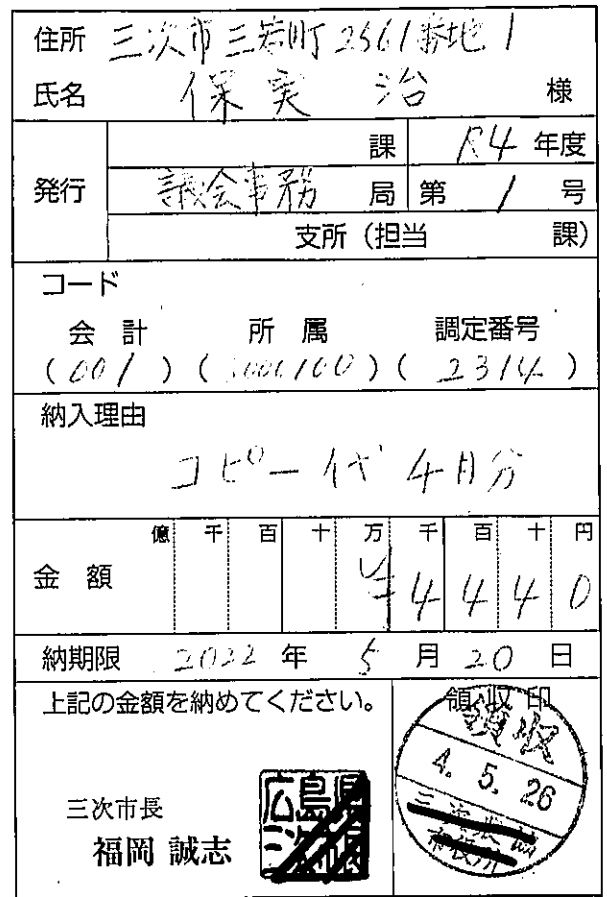 住所 三次市三若町2561番地1
氏名 保実 治 様
発行 課 R4年度
議会事務局 第1号
支所(担当 課)
コード
会計 所属 調定番号
(001) ( 100) (2314)
納入理由
コピー代 4月分
億 千 百 十 万 千 百 十 円
金額 ¥4440
納期限 2022年 5月20日
上記の金額を納めてください。
領収印
領収
4. 5. 26
三次市長
福岡 誠志
広島県